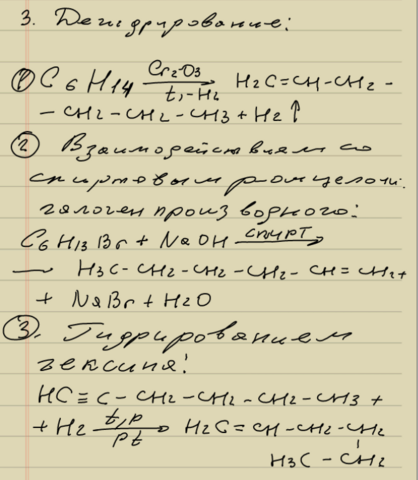 3. Дегидрирование:
① C6H14 Cr2O3 t,-H2 → H2C=CH-CH2-
-CH2-CH2-CH3 + H2↑
② Взаимодействием со
спиртовым р-м щелочи.
галоген производного:
C6H13Br + NaOH спирт →
— H3C-CH2-CH2-CH2-CH=CH2+
+ NaBr + H2O
③. Гидрированием
гексина:
HC≡C-CH2-CH2-CH2-CH3 +
+ H2 t,p Pt → H2C=CH-CH2-CH2
H3C-CH2